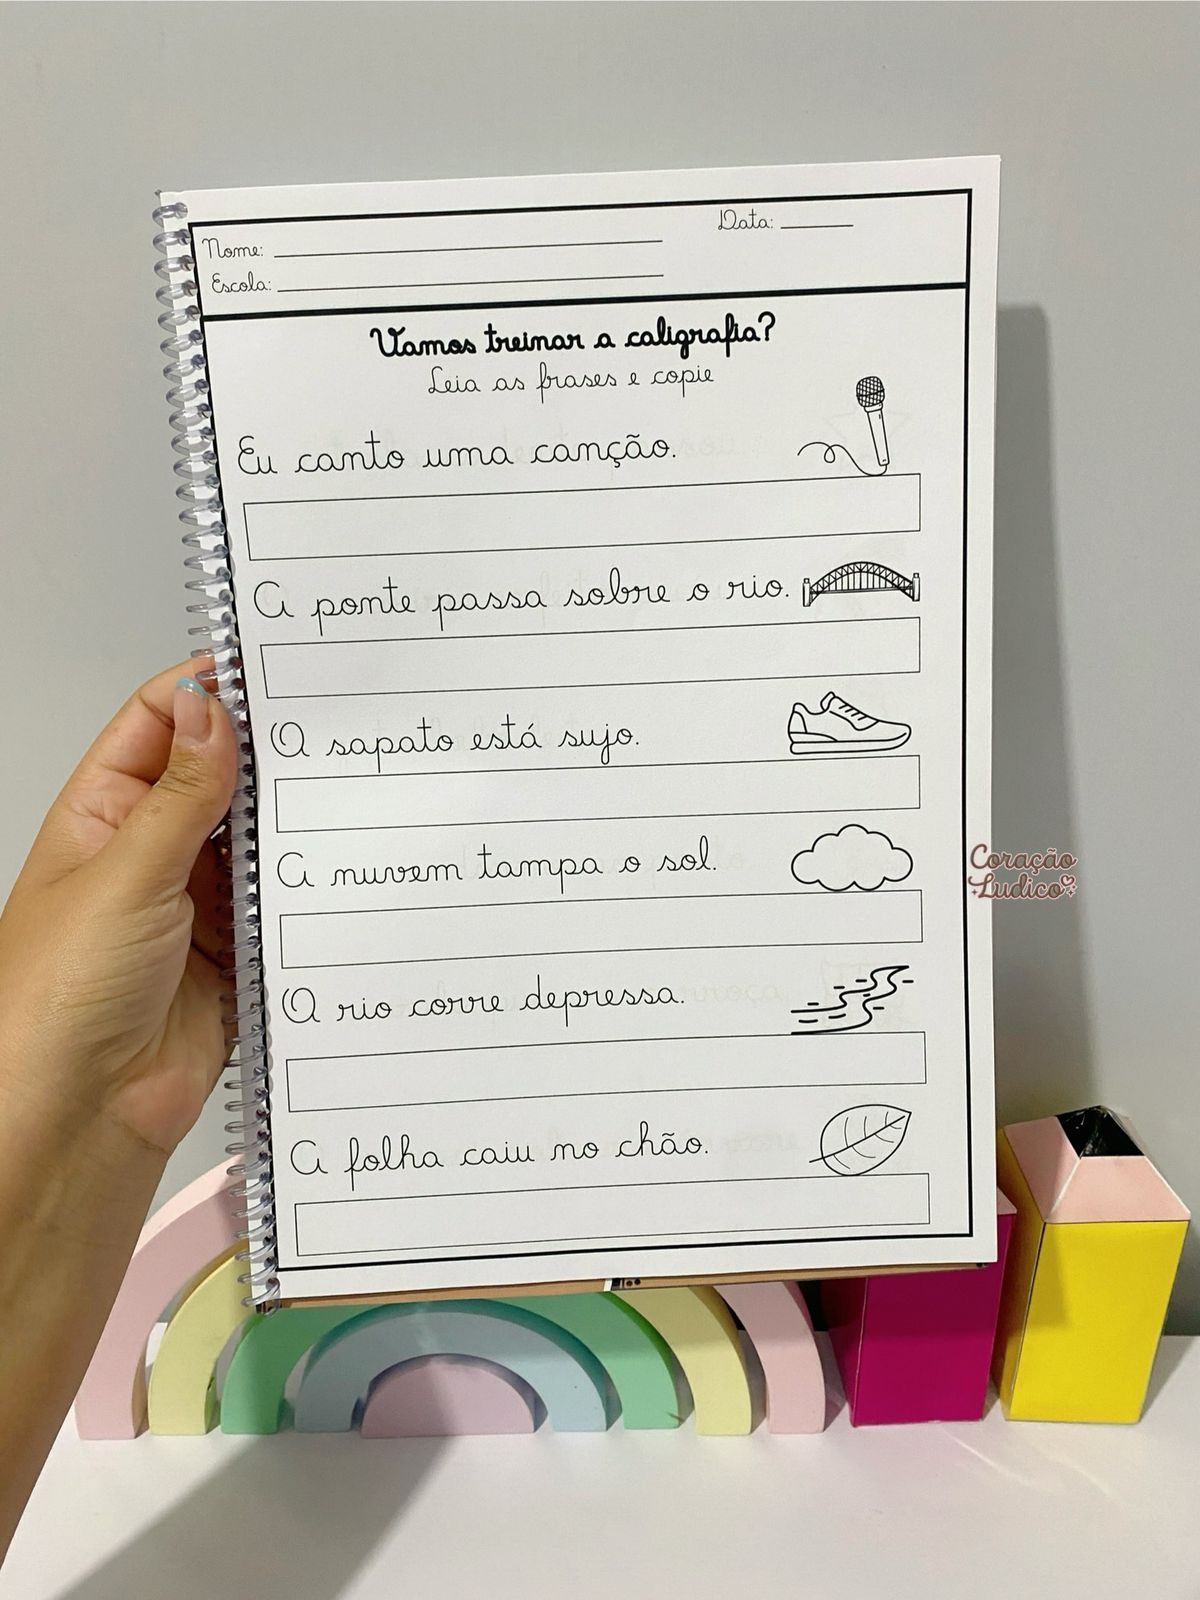 Nome:
Data:
Escola:
Vamos treinar a caligrafia?
Leia as frases e copie
Eu canto uma canção.
A ponte passa sobre o rio.
O sapato está sujo.
A nuvem tampa o sol.
O rio corre depressa.
A folha caiu no chão.
Coração
Ludico